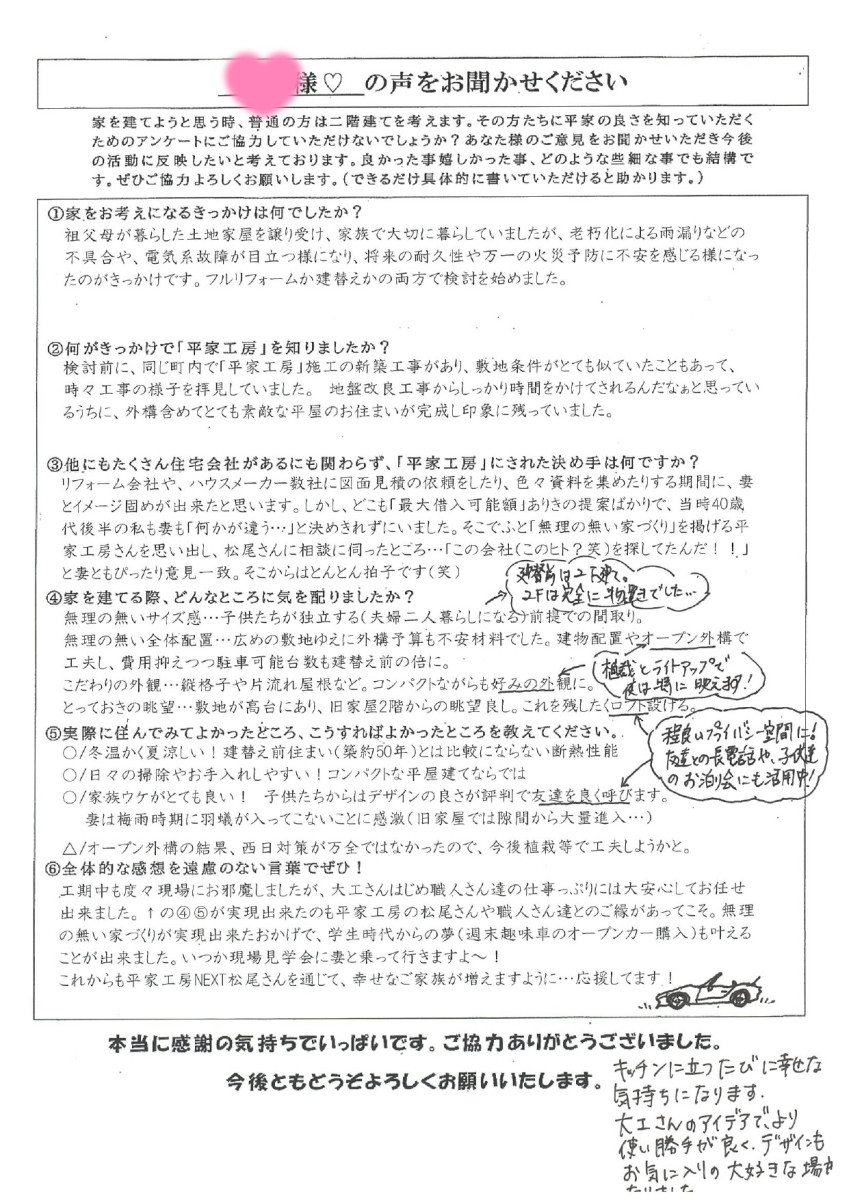 様♡ の声をお聞かせください
家を建てようと思う時、普通の方は二階建てを考えます。その方たちに平家の良さを知っていただく
ためのアンケートにご協力していただけないでしょうか？あなた様のご意見をお聞かせいただき今後
の活動に反映したいと考えております。良かった事嬉しかった事、どのような些細な事でも結構で
す。ぜひご協力よろしくお願いします。（できるだけ具体的に書いていただけると助かります。）
①家をお考えになるきっかけは何でしたか？
祖父母が暮らした土地家屋を譲り受け、家族で大切に暮らしていましたが、老朽化による雨漏りなどの
不具合や、電気系故障が目立つ様になり、将来の耐久性や万一の火災予防に不安を感じる様になっ
たのがきっかけです。フルリフォームか建替えかの両方で検討を始めました。
②何がきっかけで「平家工房」を知りましたか？
検討前に、同じ町内で「平家工房」施工の新築工事があり、敷地条件がとても似ていたこともあって、
時々工事の様子を拝見していました。 地盤改良工事からしっかり時間をかけてされるんだなぁと思ってい
るうちに、外構含めてとても素敵な平屋のお住まいが完成し印象に残っていました。
③他にもたくさん住宅会社があるにも関わらず、「平家工房」にされた決め手は何ですか？
リフォーム会社や、ハウスメーカー数社に図面見積の依頼をしたり、色々資料を集めたりする期間に、妻
とイメージ固めが出来たと思います。しかし、どこも「最大借入可能額」ありきの提案ばかりで、当時40歳
代後半の私も妻も「何かが違う…」と決めきれずにいました。そこでふと「無理の無い家づくり」を掲げる平
家工房さんを思い出し、松尾さんに相談に伺ったところ…「この会社（このヒト？笑）を探してたんだ！！」
と妻ともぴったり意見一致。そこからはとんとん拍子です（笑）
建替前は2F建て。
2Fは完全に物置きでした…
④家を建てる際、どんなところに気を配りましたか？
無理の無いサイズ感…子供たちが独立する（夫婦二人暮らしになる）前提での間取り。
無理の無い全体配置…広めの敷地ゆえに外構予算も不安材料でした。建物配置やオープン外構で
工夫し、費用抑えつつ駐車可能台数も建替え前の倍に。
こだわりの外観…縦格子や片流れ屋根など。コンパクトながらも好みの外観に。
とっておきの眺望…敷地が高台にあり、旧家屋2階からの眺望良し。これを残したくロフト設ける。
植栽とライトアップで
夜は特に映えます！
⑤実際に住んでみてよかったところ、こうすればよかったところを教えてください。
○/冬温かく夏涼しい！建替え前住まい（築約50年）とは比較にならない断熱性能
○/日々の掃除やお手入れしやすい！コンパクトな平屋建てならでは
○/家族ウケがとても良い！ 子供たちからはデザインの良さが評判で友達を良く呼びます。
妻は梅雨時期に羽蟻が入ってこないことに感激（旧家屋では隙間から大量進入…）
△/オープン外構の結果、西日対策が万全ではなかったので、今後植栽等で工夫しようかと。
程良いプライバシー空間に！
友達との長電話や、子供達
のお泊り会にも活用中！
⑥全体的な感想を遠慮のない言葉でぜひ！
工期中も度々現場にお邪魔しましたが、大工さんはじめ職人さん達の仕事っぷりには大安心してお任せ
出来ました。↑の④⑤が実現出来たのも平家工房の松尾さんや職人さん達とのご縁があってこそ。無理
の無い家づくりが実現出来たおかげで、学生時代からの夢（週末趣味車のオープンカー購入）も叶える
ことが出来ました。いつか現場見学会に妻と乗って行きますよ～！
これからも平家工房NEXT松尾さんを通じて、幸せなご家族が増えますように…応援してます！
本当に感謝の気持ちでいっぱいです。ご協力ありがとうございました。
今後ともどうぞよろしくお願いいたします。
キッチンに立つたびに幸せな
気持ちになります.
大工さんのアイデアで、より
使い勝手が良く、デザインも
お気に入りの大好きな場所